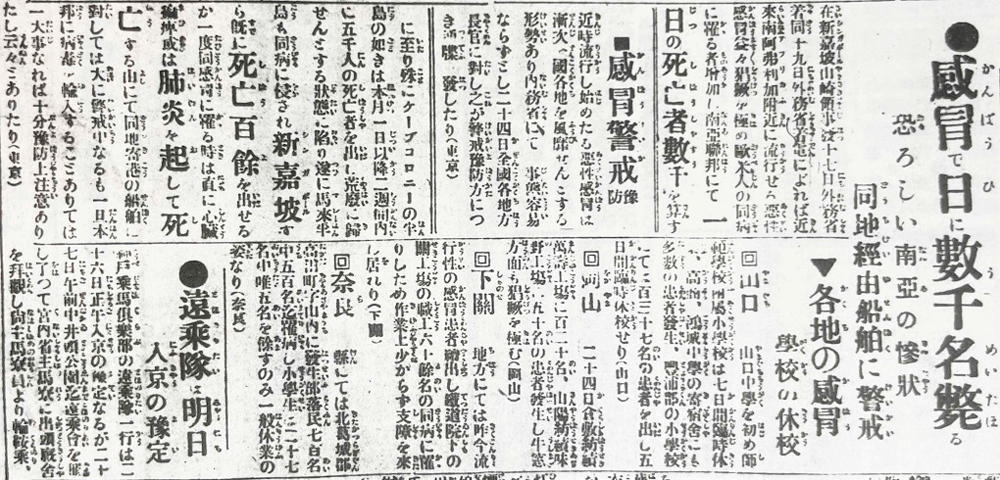 ●感冒で日に數千名斃る
恐ろしい南亞の慘狀
同地經由船舶に警戒
在新嘉坡山崎領事發十七日外務省
着同十九日外務省着電によれば近
來南阿弗利加附近に流行せる惡性
感冒益々猖獗を極め歐米人の同病
に罹る者增加し南亞聯邦にて一
日の死亡者數千を算す
■感冒警戒 豫防
近時流行し始めたる惡性感冒は
漸次全國各地を風靡せんとする
形勢あり內務省にて事態容易
ならずとし二十四日全國各地方
長官に對し之が警戒豫防方につ
き通牒を發したり(東京)
に至り殊にケープコロニーの半
島の如きは本月一日以降二週間內
に五千人の死亡者を出し荒廢に歸
せんとする狀態に陷り遂に馬來半
島も同病に侵され新嘉坡す
ら既に死亡百餘を出せる
か一度同感冒に罹る時は直に心臟
痲痺或は肺炎を起して死
亡する由にて同地寄港の船舶に
對しては大に警戒中なるも一旦本
邦に病毒を輸入することありては
一大事なれば十分豫防上注意あり
たし云々とありたり(東京)
▼各地の感冒
學校の休校
回山口 山口中學を初め師
範學校同附屬小學校は七日間臨時休
校、高商、鴻城中學の寄宿舍にも
多數の患者發生、興浦部の小學校
にて百三十七名の患者を出し五
日間臨時休校せり(山口)
回岡山 二十四日倉敷紡績
萬壽工場に百二十名、山陽紡績味
野工場に五十名の患者發生し牛窓
方面も猖獗を極む(岡山)
回下關 地方にては昨今流
行性の感冒患者續出し鐵道院下の
關工場の職工六十餘名の同病に罹
りしため作業上少からず支障を來
し居れり(下關)
回奈良 縣にては北葛城郡
高田町字山內に發生部落民七百名
中五百名迄罹病し小學生二十七
名中唯五名を餘すのみ一般休業の
姿なり(奈良)
●遠乘隊は明日
入京の豫定
神戶乘馬俱樂部の遠乘隊一行は二
十六日正午入京の豫定なるが二十
七日午前中二重橋頭公園迄遠乘會を催
しりつて宮內省主馬寮に出頭廐舍
を拜觀し尙主馬寮員より輪鞍乘